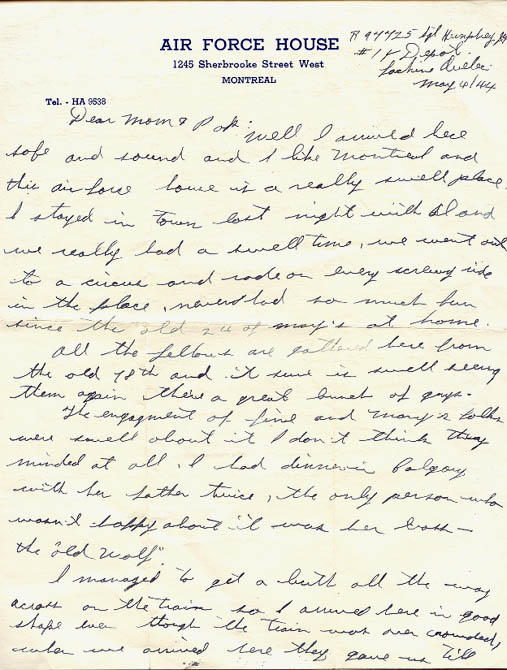 AIR FORCE HOUSE
1245 Sherbrooke Street West
MONTREAL
Tel. - HA 9538
R 97425 Sgt Humphrey
#1 Y Depot
Lachine Quebec
May 4/44
Dear Mom & Pop: Well I arrived here
safe and sound and I like Montreal and
this air force house is a really swell place.
I stayed in town last night with Al and
we really had a swell time, we went out
to a circus and rode on every screwy ride
in the place, never had so much fun
since the old 24 of may's at home.
All the fellows are gathered here from
the old 78th and it sure is swell seeing
them again there a great bunch of guys.
The engagment of fine and Mary's folks
were swell about it I don't think they
minded at all. I had dinner in Calgary
with her father twice, the only person who
wasn't happy about it was her boss -
the "old wolf".
I managed to get a berth all the way
across on the train so I arrived here in good
shape even though the train was over crowded,
when we arrived here they gave us till